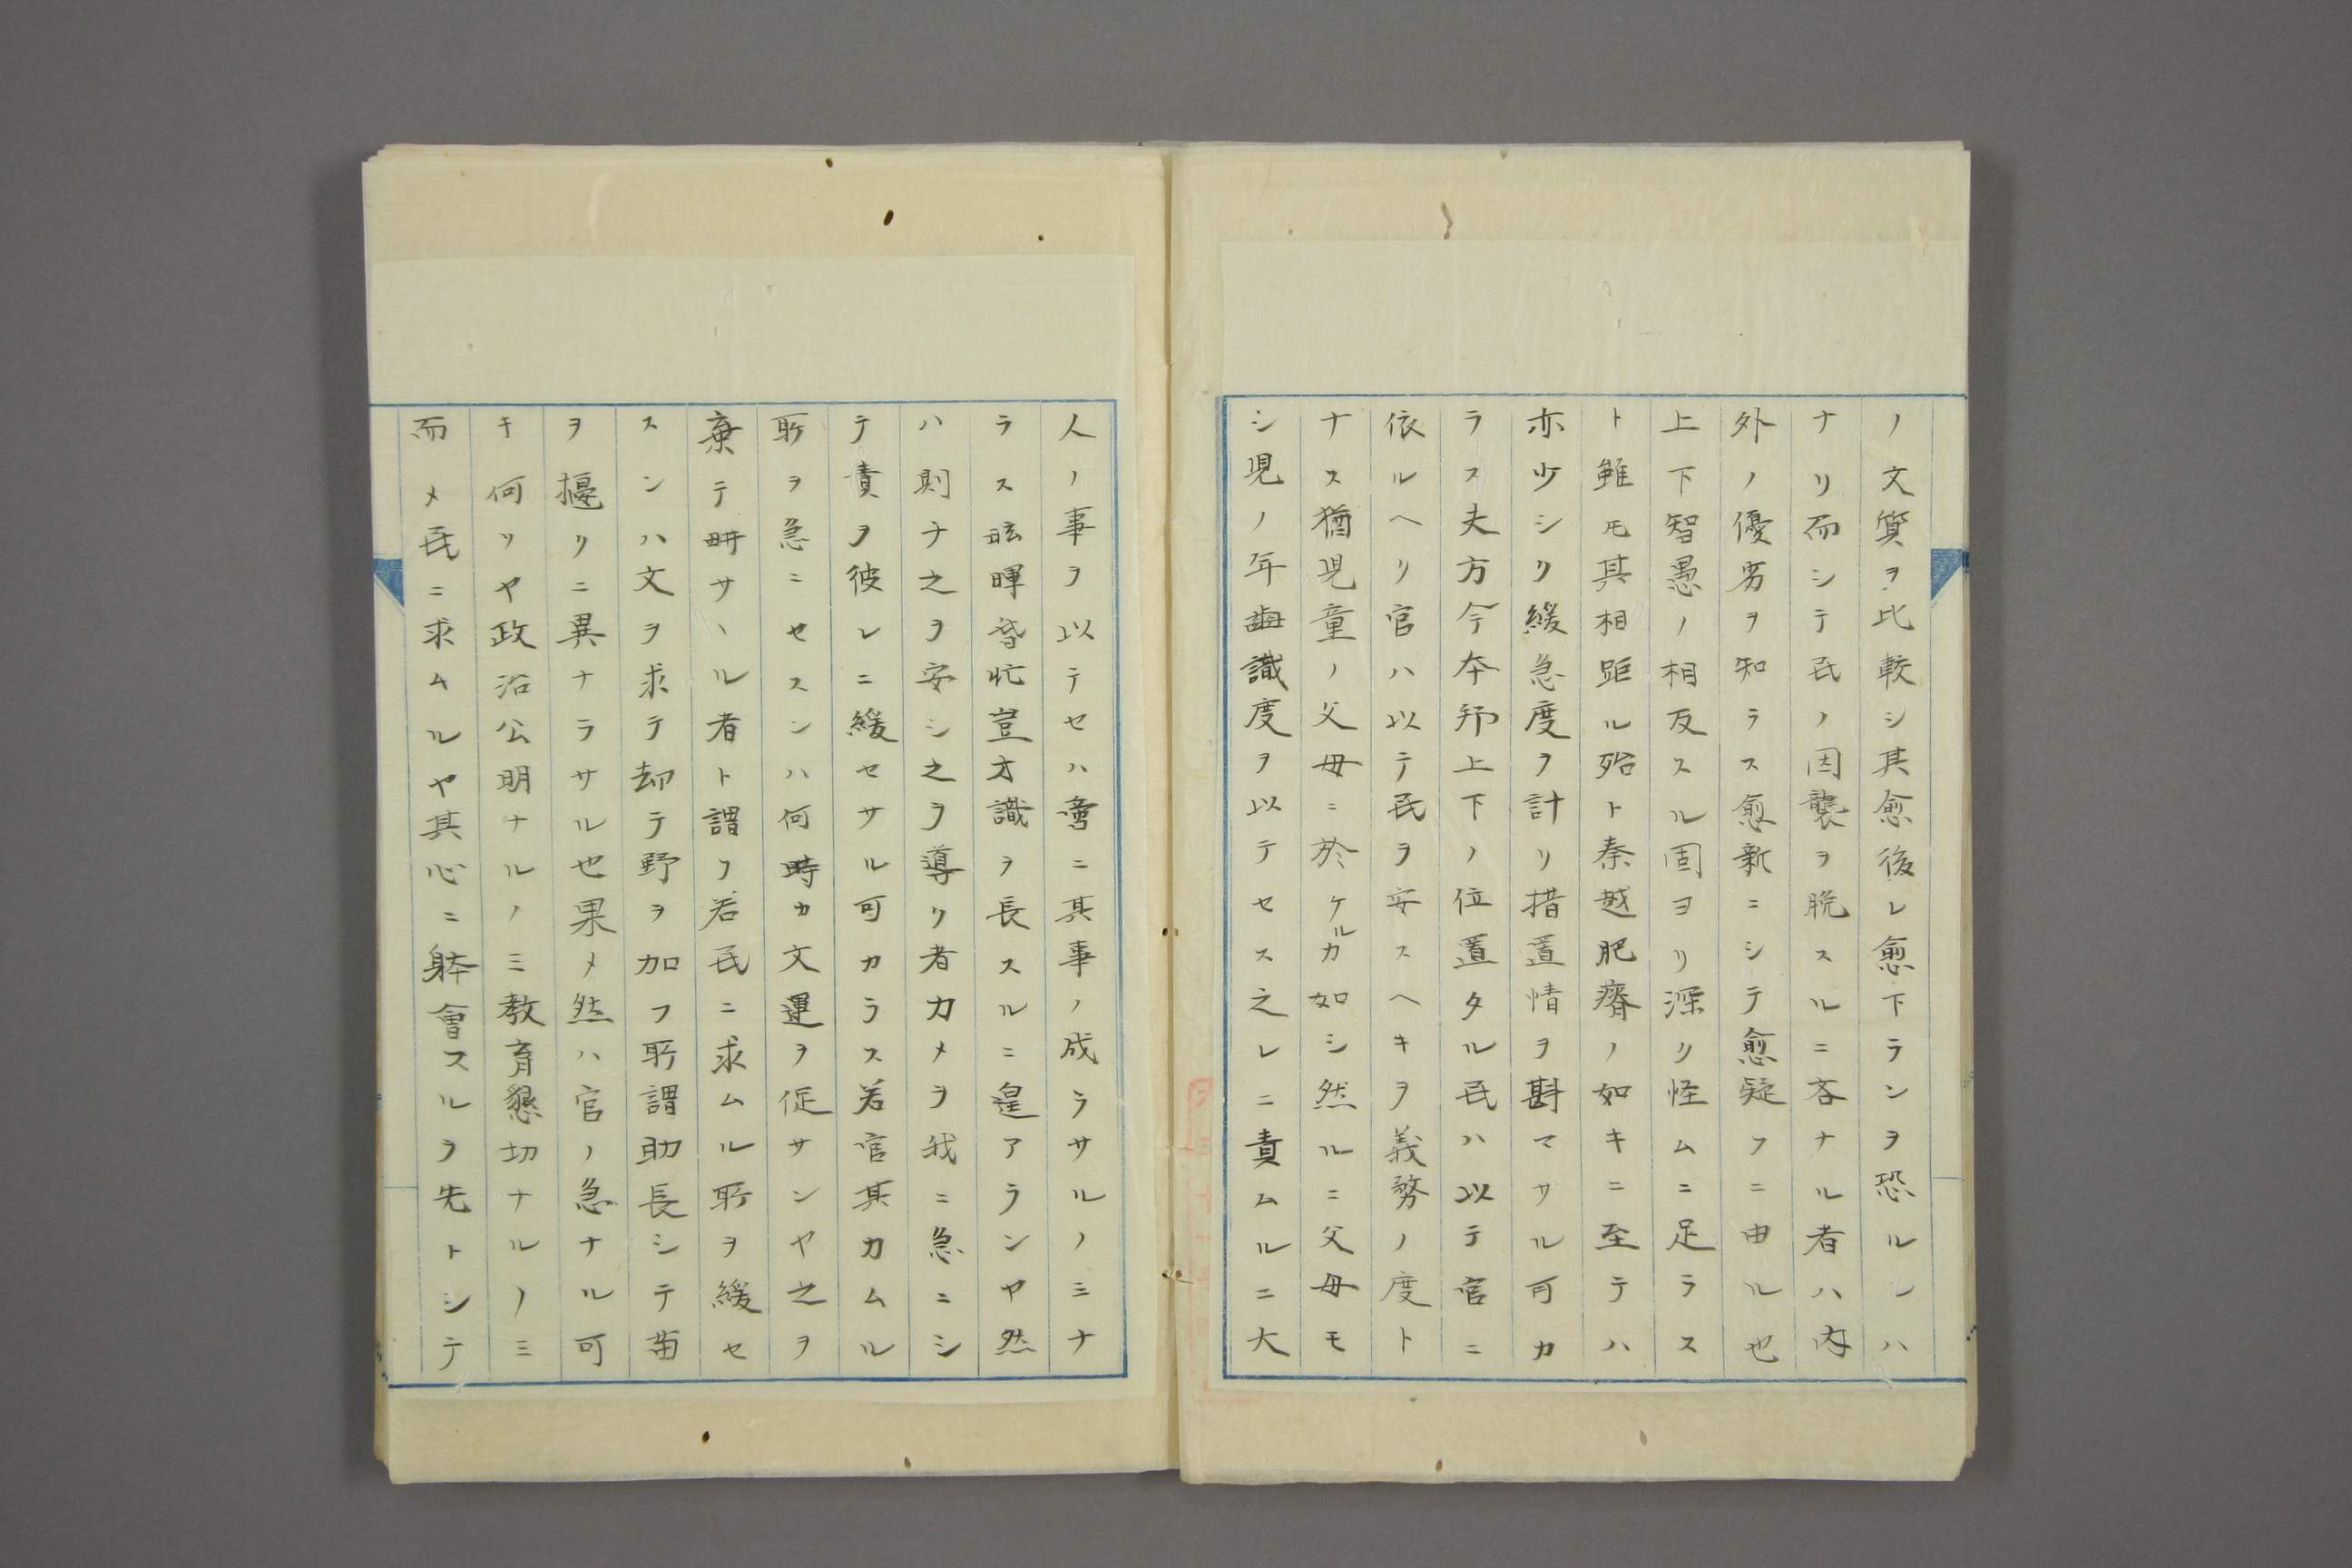 ノ文質ヲ比較シ其愈後レ愈下ランヲ恐ルレハ
ナリ而シテ民ノ因襲ヲ脱スルニ吝ナル者ハ内
外ノ優劣ヲ知ラス愈新ニシテ愈疑フニ由ル也
上下智愚ノ相反スル固ヨリ深ク怪ムニ足ラス
ト雖モ其相距ル殆ト秦越肥瘠ノ如キニ至テハ
亦少シク緩急度ヲ計リ措置情ヲ斟マサル可カ
ラス夫方今本邦上下ノ位置タル民ハ以テ官ニ
依ルヘク官ハ以テ民ヲ安スヘキヲ義務ノ度ト
ナス猶児童ノ父母ニ於ケルカ如シ然ルニ父母モ
シ児ノ年齒識度ヲ以テセス之レニ責ムルニ大
人ノ事ヲ以テセハ啻ニ其事ノ成ラサルノミナ
ラス眩暈昏忙豈才識ヲ長スルニ遑アランヤ然
ハ則チ之ヲ安シ之ヲ導ク者力メヲ我ニ急ニシ
テ責ヲ彼レニ緩セサル可カラス若官其力ムル
所ヲ急ニセスンハ何時カ文運ヲ促サンヤ之ヲ
棄テ耕サヽル者ト謂フ若民ニ求ムル所ヲ緩セ
スンハ文ヲ求テ却テ野ヲ加フ所謂助長シテ苗
ヲ揠クニ異ナラサル也果メ然ハ官ノ急ナル可
キ何ソヤ政治公明ナルノミ教育懇切ナルノミ
而メ民ニ求ムルヤ其心ニ躰會スルヲ先トシテ